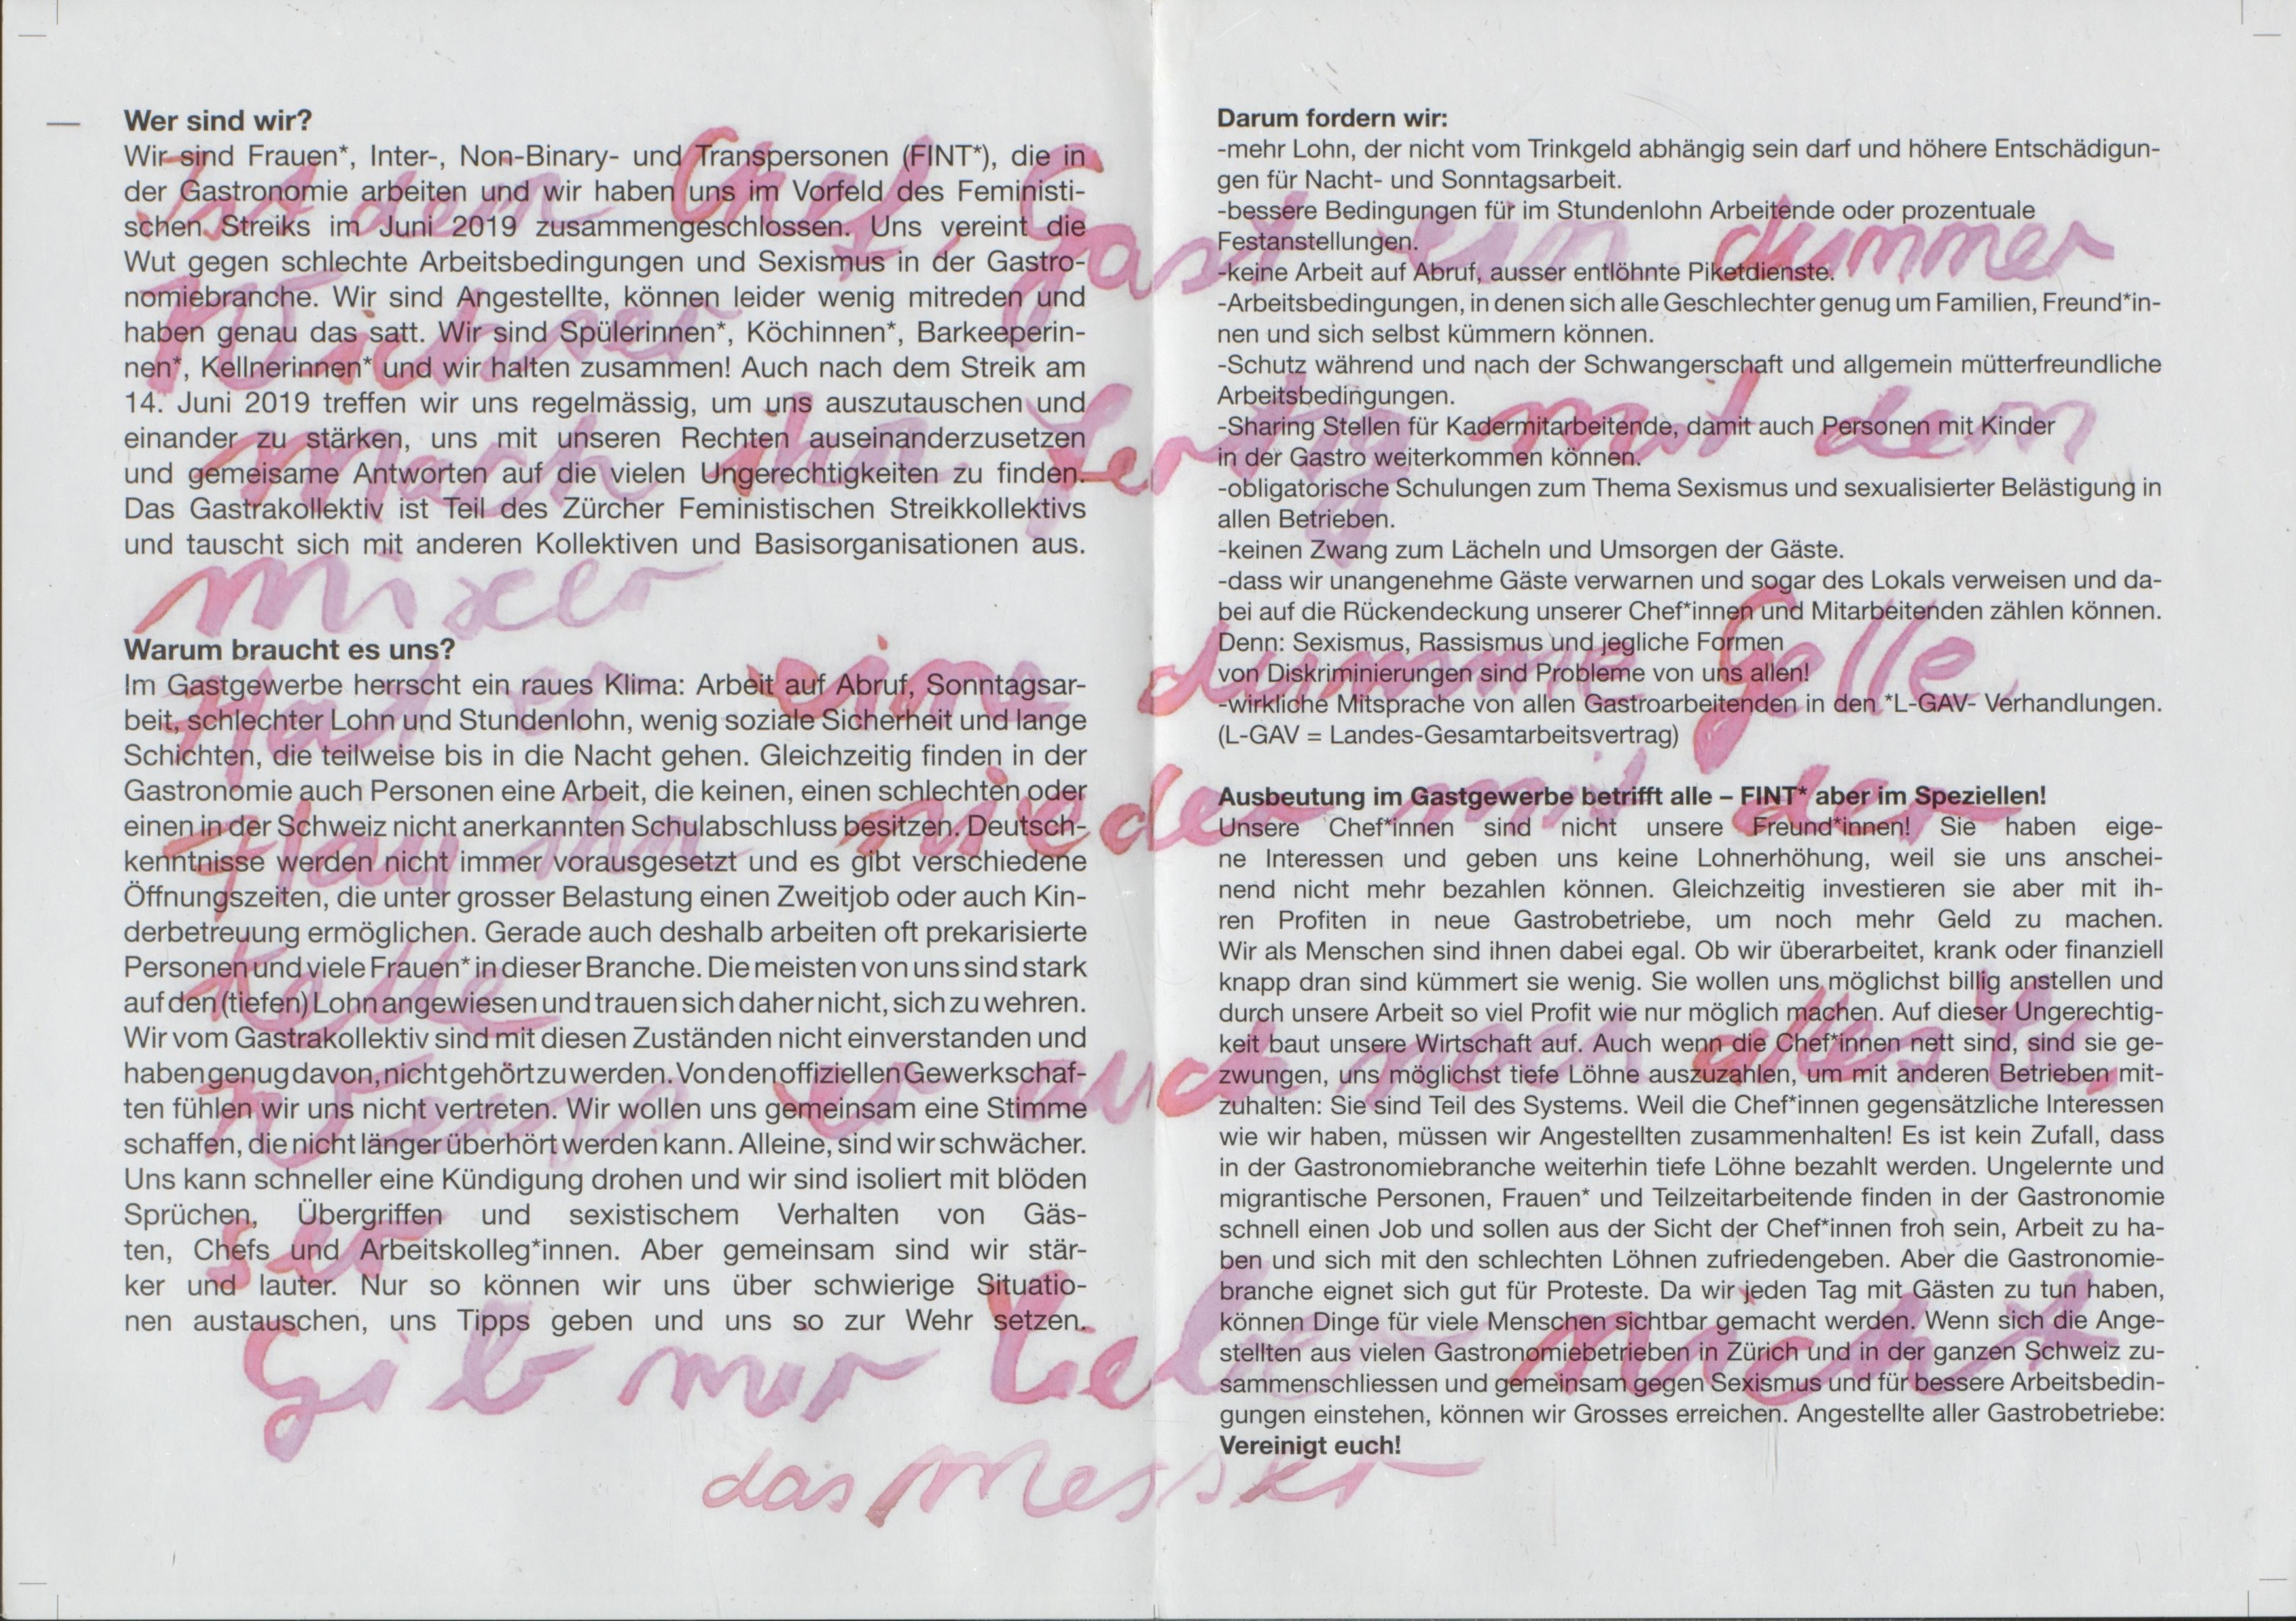 Wer sind wir?
Wir sind Frauen*, Inter-, Non-Binary- und Transpersonen (FINT*), die in
der Gastronomie arbeiten und wir haben uns im Vorfeld des Feministi-
schen Streiks im Juni 2019 zusammengeschlossen. Uns vereint die
Wut gegen schlechte Arbeitsbedingungen und Sexismus in der Gastro-
nomiebranche. Wir sind Angestellte, können leider wenig mitreden und
haben genau das satt. Wir sind Spülerinnen*, Köchinnen*, Barkeeperin-
nen*, Kellnerinnen* und wir halten zusammen! Auch nach dem Streik am
14. Juni 2019 treffen wir uns regelmässig, um uns auszutauschen und
einander zu stärken, uns mit unseren Rechten auseinanderzusetzen
und gemeisame Antworten auf die vielen Ungerechtigkeiten zu finden.
Das Gastrakollektiv ist Teil des Zürcher Feministischen Streikkollektivs
und tauscht sich mit anderen Kollektiven und Basisorganisationen aus.
Warum braucht es uns?
Im Gastgewerbe herrscht ein raues Klima: Arbeit auf Abruf, Sonntagsar-
beit, schlechter Lohn und Stundenlohn, wenig soziale Sicherheit und lange
Schichten, die teilweise bis in die Nacht gehen. Gleichzeitig finden in der
Gastronomie auch Personen eine Arbeit, die keinen, einen schlechten oder
einen in der Schweiz nicht anerkannten Schulabschluss besitzen. Deutsch-
kenntnisse werden nicht immer vorausgesetzt und es gibt verschiedene
Öffnungszeiten, die unter grosser Belastung einen Zweitjob oder auch Kin-
derbetreuung ermöglichen. Gerade auch deshalb arbeiten oft prekarisierte
Personen und viele Frauen* in dieser Branche. Die meisten von uns sind stark
auf den (tiefen) Lohn angewiesen und trauen sich daher nicht, sich zu wehren.
Wir vom Gastrakollektiv sind mit diesen Zuständen nicht einverstanden und
haben genug davon, nicht gehört zu werden. Von den offiziellen Gewerkschaf-
ten fühlen wir uns nicht vertreten. Wir wollen uns gemeinsam eine Stimme
schaffen, die nicht länger überhört werden kann. Alleine, sind wir schwächer.
Uns kann schneller eine Kündigung drohen und wir sind isoliert mit blöden
Sprüchen, Übergriffen und sexistischem Verhalten von Gäs-
ten, Chefs und Arbeitskolleg*innen. Aber gemeinsam sind wir stär-
ker und lauter. Nur so können wir uns über schwierige Situatio-
nen austauschen, uns Tipps geben und uns so zur Wehr setzen.
Darum fordern wir:
-mehr Lohn, der nicht vom Trinkgeld abhängig sein darf und höhere Entschädigun-
gen für Nacht- und Sonntagsarbeit.
-bessere Bedingungen für im Stundenlohn Arbeitende oder prozentuale
Festanstellungen.
-keine Arbeit auf Abruf, ausser entlöhnte Piketdienste.
-Arbeitsbedingungen, in denen sich alle Geschlechter genug um Familien, Freund*in-
nen und sich selbst kümmern können.
-Schutz während und nach der Schwangerschaft und allgemein mütterfreundliche
Arbeitsbedingungen.
-Sharing Stellen für Kadermitarbeitende, damit auch Personen mit Kinder
in der Gastro weiterkommen können.
-obligatorische Schulungen zum Thema Sexismus und sexualisierter Belästigung in
allen Betrieben.
-keinen Zwang zum Lächeln und Umsorgen der Gäste.
-dass wir unangenehme Gäste verwarnen und sogar des Lokals verweisen und da-
bei auf die Rückendeckung unserer Chef*innen und Mitarbeitenden zählen können.
Denn: Sexismus, Rassismus und jegliche Formen
von Diskriminierungen sind Probleme von uns allen!
-wirkliche Mitsprache von allen Gastroarbeitenden in den *L-GAV- Verhandlungen.
(L-GAV = Landes-Gesamtarbeitsvertrag)
Ausbeutung im Gastgewerbe betrifft alle – FINT* aber im Speziellen!
Unsere Chef*innen sind nicht unsere Freund*innen! Sie haben eige-
ne Interessen und geben uns keine Lohnerhöhung, weil sie uns anschei-
nend nicht mehr bezahlen können. Gleichzeitig investieren sie aber mit ih-
ren Profiten in neue Gastrobetriebe, um noch mehr Geld zu machen.
Wir als Menschen sind ihnen dabei egal. Ob wir überarbeitet, krank oder finanziell
knapp dran sind kümmert sie wenig. Sie wollen uns möglichst billig anstellen und
durch unsere Arbeit so viel Profit wie nur möglich machen. Auf dieser Ungerechtig-
keit baut unsere Wirtschaft auf. Auch wenn die Chef*innen nett sind, sind sie ge-
zwungen, uns möglichst tiefe Löhne auszuzahlen, um mit anderen Betrieben mit-
zuhalten: Sie sind Teil des Systems. Weil die Chef*innen gegensätzliche Interessen
wie wir haben, müssen wir Angestellten zusammenhalten! Es ist kein Zufall, dass
in der Gastronomiebranche weiterhin tiefe Löhne bezahlt werden. Ungelernte und
migrantische Personen, Frauen* und Teilzeitarbeitende finden in der Gastronomie
schnell einen Job und sollen aus der Sicht der Chef*innen froh sein, Arbeit zu ha-
ben und sich mit den schlechten Löhnen zufriedengeben. Aber die Gastronomie-
branche eignet sich gut für Proteste. Da wir jeden Tag mit Gästen zu tun haben,
können Dinge für viele Menschen sichtbar gemacht werden. Wenn sich die Ange-
stellten aus vielen Gastronomiebetrieben in Zürich und in der ganzen Schweiz zu-
sammenschliessen und gemeinsam gegen Sexismus und für bessere Arbeitsbedin-
gungen einstehen, können wir Grosses erreichen. Angestellte aller Gastrobetriebe:
Vereinigt euch!
Ist der Chef, Gast ein dummer
Wichser
mach ihn fertig mit dem
mixer
Hat er eine dumme Gelle
Hau ihn nieder mit der
Kelle
Weiss er auch noch alles be
ser
Gib mir lieber nicht
das Messer